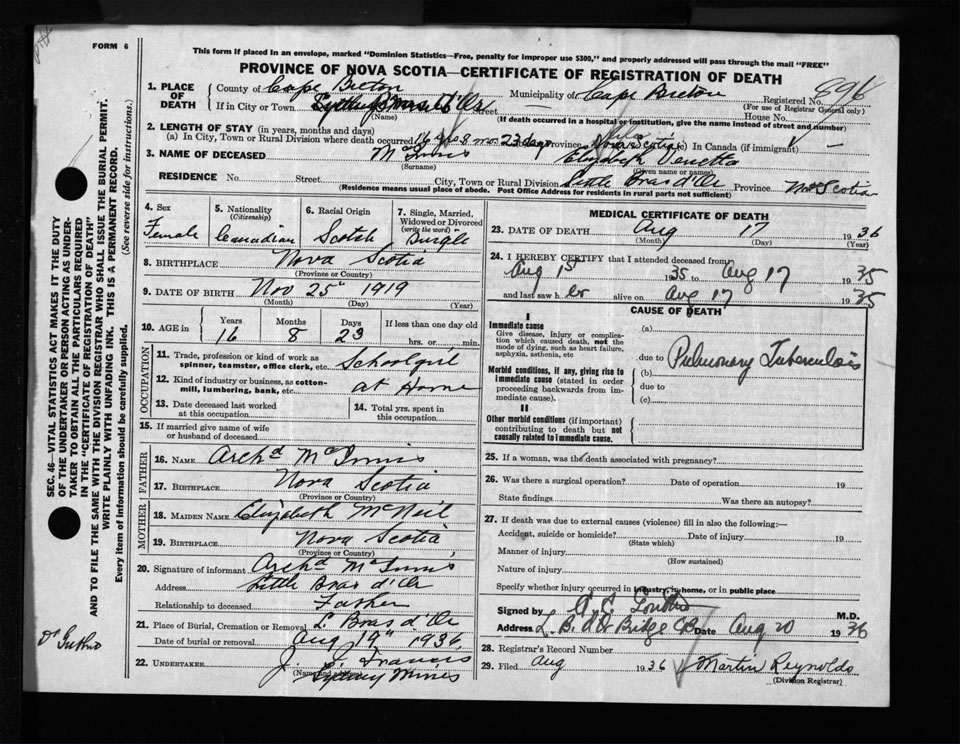 FORM 6
This form if placed in an envelope, marked "Dominion Statistics—Free, penalty for improper use $300," and properly addressed will pass through the mail "FREE"
PROVINCE OF NOVA SCOTIA—CERTIFICATE OF REGISTRATION OF DEATH
1. PLACE OF DEATH
County of Cape Breton Municipality of Cape Breton Registered No. 896
(For use of Registrar General only)
If in City or Town Street House No.
(Name) (If death occurred in a hospital or institution, give the name instead of street and number)
2. LENGTH OF STAY (in years, months and days)
(a) In City, Town or Rural Division where death occurred 16 8 mo 23 days Province Nova Scotia (c) In Canada (if immigrant) —
3. NAME OF DECEASED McInnis Elizabeth Venetta
(Surname) (Given name or names)
RESIDENCE No. Street City, Town or Rural Division Little Bras d'Or Province N. Scotia
(Residence means usual place of abode. Post Office Address for residents in rural parts not sufficient)
4. Sex Female
5. Nationality (Citizenship) Canadian
6. Racial Origin Scotch
7. Single, Married, Widowed or Divorced (write the word) Single
8. BIRTHPLACE Nova Scotia
(Province or Country)
9. DATE OF BIRTH Nov 25" 1919
(Month) (Day) (Year)
10. AGE in Years 16 Months 8 Days 23 If less than one day old hrs. or min.
OCCUPATION
11. Trade, profession or kind of work as spinner, teamster, office clerk, etc. Schoolgirl
12. Kind of industry or business, as cotton-mill, lumbering, bank, etc. at Home
13. Date deceased last worked at this occupation
14. Total yrs. spent in this occupation
15. If married give name of wife or husband of deceased
FATHER
16. NAME Archd McInnis
17. BIRTHPLACE Nova Scotia
(Province or Country)
MOTHER
18. MAIDEN NAME Elizabeth McNeil
19. BIRTHPLACE Nova Scotia
(Province or Country)
20. Signature of informant Archd McInnis
Address Little Bras d'Or
Relationship to deceased Father
21. Place of Burial, Cremation or Removal L. Bras d'Or
Date of burial or removal Aug 19" 1936
22. UNDERTAKER J. Francis
(Name and
Sydney Mines
MEDICAL CERTIFICATE OF DEATH
23. DATE OF DEATH Aug 17 1936
(Month) (Day) (Year)
24. I HEREBY CERTIFY that I attended deceased from
Aug 1st 1935 to Aug 17 1935
and last saw her alive on Aug 17 1935
CAUSE OF DEATH
I
Immediate cause
Give disease, injury or complication which caused death, not the mode of dying, such as heart failure, asphyxia, asthenia, etc
Morbid conditions, if any, giving rise to immediate cause (stated in order proceeding backwards from immediate cause).
II
Other morbid conditions (if important) contributing to death but not causally related to immediate cause.
(a)
due to Pulmonary Tuberculosis
(b)
due to
(c)
25. If a woman, was the death associated with pregnancy?
26. Was there a surgical operation? Date of operation 19
State findings Was there an autopsy?
27. If death was due to external causes (violence) fill in also the following:—
Accident, suicide or homicide? Date of injury 19
(State which)
Manner of injury
(How sustained)
Nature of injury
Specify whether injury occurred in industry, in home, or in public place
Signed by M.D.
Address L. B. d'Or Bridge CB Date Aug 20 1936
28. Registrar's Record Number
29. Filed Aug 1936 Martin Reynolds
(Division Registrar)
SEC. 46—VITAL STATISTICS ACT MAKES IT THE DUTY
OF THE UNDERTAKER OR PERSON ACTING AS UNDER-
TAKER TO OBTAIN ALL THE PARTICULARS REQUIRED
IN THE "CERTIFICATE OF REGISTRATION OF DEATH"
AND TO FILE THE SAME WITH THE DIVISION REGISTRAR WHO SHALL ISSUE THE BURIAL PERMIT.
WRITE PLAINLY WITH UNFADING INK. THIS IS A PERMANENT RECORD.
Every item of information should be carefully supplied. (See reverse side for instructions.)
Dr Guthro